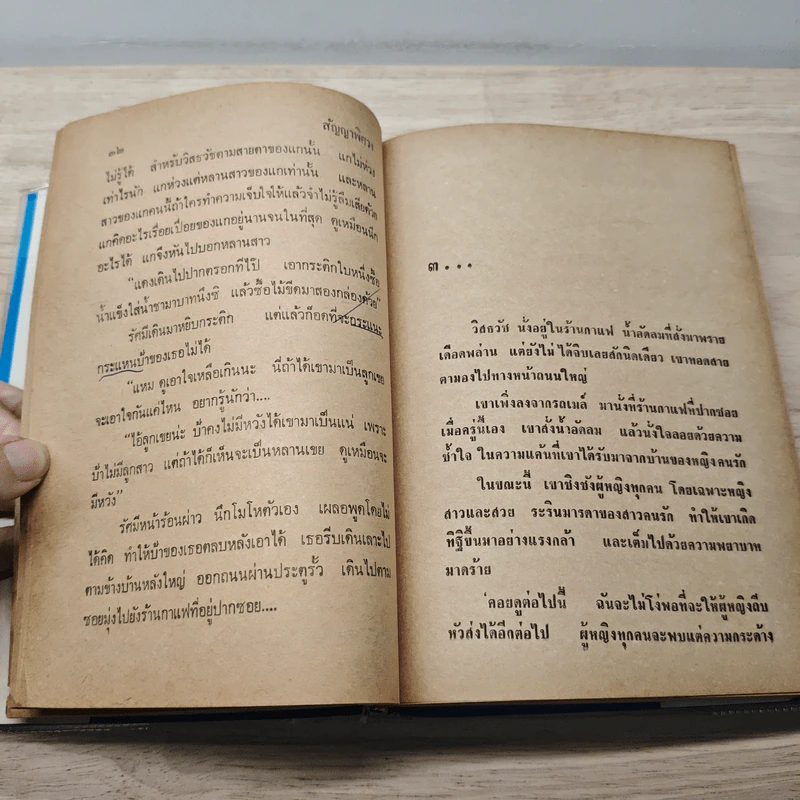 ๓๒
สัญญาพิศวง
ไม่รู้ได้ สำหรับวิสธวัชตามสายตาของแกนั้น แกไม่ห่วง
เท่าไรนัก แกห่วงแต่หลานสาวของแกเท่านั้น และหลาน
สาวของแกคนนี้ถ้าใครทำความเจ็บใจให้แล้วจำไม่รู้ลืมเสียด้วย
แกคิดอะไรเรื่อยเปื่อยของแกอยู่นานจนในที่สุด ดูเหมือนนึก
อะไรได้ แกจึงหันไปบอกหลานสาว
“แดงเดินไปปากตรอกทีไป๊ เอากระติกใบหนึ่งซื้อ
น้ำแข็งใส่น้ำชามาบาทนึงซิ แล้วซื้อไม้ขีดมาสองกล่องด้วย”
รัศมีเดินมาหยิบกระติก แต่แล้วก็อดที่จะกระแนะ
กระแหนป้าของเธอไม่ได้
“แหม ดูเอาใจเหลือเกินนะ นี่ถ้าได้เขามาเป็นลูกเขย
จะเอาใจกันแค่ไหน อยากรู้นักว่า....
“ไอ้ลูกเขยน่ะ ป้าคงไม่มีหวังได้เขามาเป็นแน่ เพราะ
ป้าไม่มีลูกสาว แต่ถ้าได้ก็เห็นจะเป็นหลานเขย ดูเหมือนจะ
มีหวัง”
รัศมีหน้าร้อนผ่าว นึกโมโหตัวเอง เผลอพูดโดยไม่
ได้คิด ทำให้ป้าของเธอตลบหลังเอาได้ เธอรีบเดินเลาะไป
ตามข้างบ้านหลังใหญ่ ออกถนนผ่านประตูรั้ว เดินไปตาม
ซอยมุ่งไปยังร้านกาแฟที่อยู่ปากซอย....
๓...
วิสธวัช นั่งอยู่ในร้านกาแฟ น้ำอัดลมที่สั่งมาพราย
เดือดพล่าน แต่ยังไม่ได้จิบเลยสักนิดเดียว เขาทอดสาย
ตามองไปทางหน้าถนนใหญ่
เขาเพิ่งลงจากรถเมล์ มานั่งที่ร้านกาแฟที่ปากซอย
เมื่อครู่นี้เอง เขาสั่งน้ำอัดลม แล้วนั่งใจลอยด้วยความ
ช้ำใจ ในความแค้นที่เขาได้รับมาจากบ้านของหญิงคนรัก
ในขณะนี้ เขาชิงชังผู้หญิงทุกคน โดยเฉพาะหญิง
สาวและสวย ระรินมารดาของสาวคนรัก ทำให้เขาเกิด
ทิฐิขึ้นมาอย่างแรงกล้า และเต็มไปด้วยความพยาบาท
มาดร้าย
‘คอยดูต่อไปนี้ ฉันจะไม่โง่พอที่จะให้ผู้หญิงถีบ
หัวส่งได้อีกต่อไป ผู้หญิงทุกคนจะพบแต่ความกระด้าง